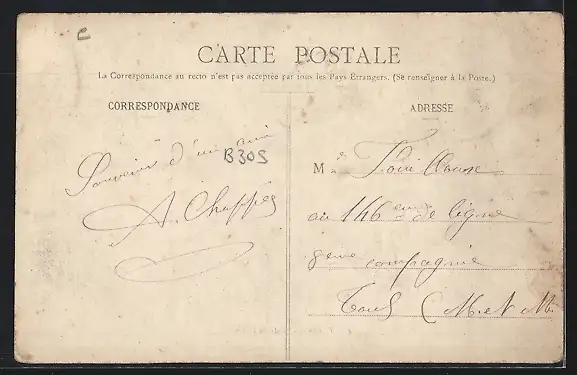 C
CARTE POSTALE
La Correspondance au recto n'est pas acceptée par tous les Pays Etrangers. (Se renseigner à la Poste.)
CORRESPONDANCE
Souvenir d'un ami
B305
A. Chappes
ADRESSE
M
au 146 eme de ligne
8 eme compagnie
Toul (M. et M.